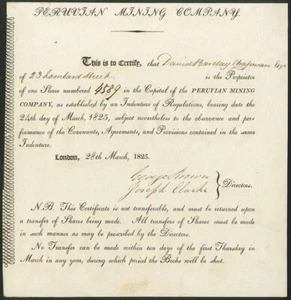 PERUVIAN MINING COMPANY.
This is to Certify, that Daniel Barclay Chapman Esqr
of 23 Lombard Street is the Proprietor
of one Share numbered 4539 in the Capital of the PERUVIAN MINING
COMPANY, as established by an Indenture of Regulations, bearing date the
24th day of March, 1825, subject nevertheless to the observance and per-
formance of the Covenants, Agreements, and Provisions contained in the same
Indenture.
London, 28th March, 1825.
George Brown
Joseph Clarke
Directors.
N.B. This Certificate is not transferable, and must be returned upon
a transfer of Shares being made. All transfers of Shares must be
made in such manner as may be prescribed by the Directors.
No Transfer can be made within ten days of the first Thursday in
March in any year, during which period the Books will be shut.